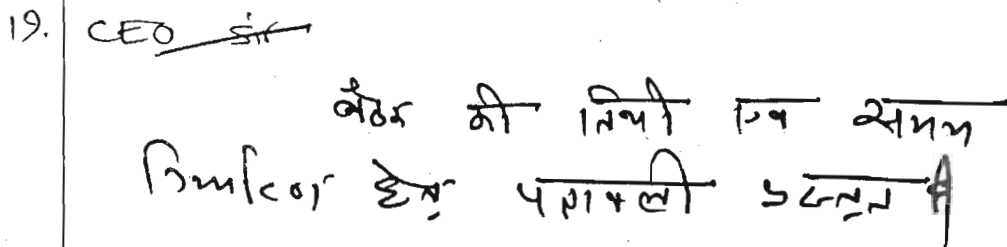 19. CEO सर
बैठक की तिथी एवं समय
निर्धारण हेतु पत्रावली प्रस्तुत है